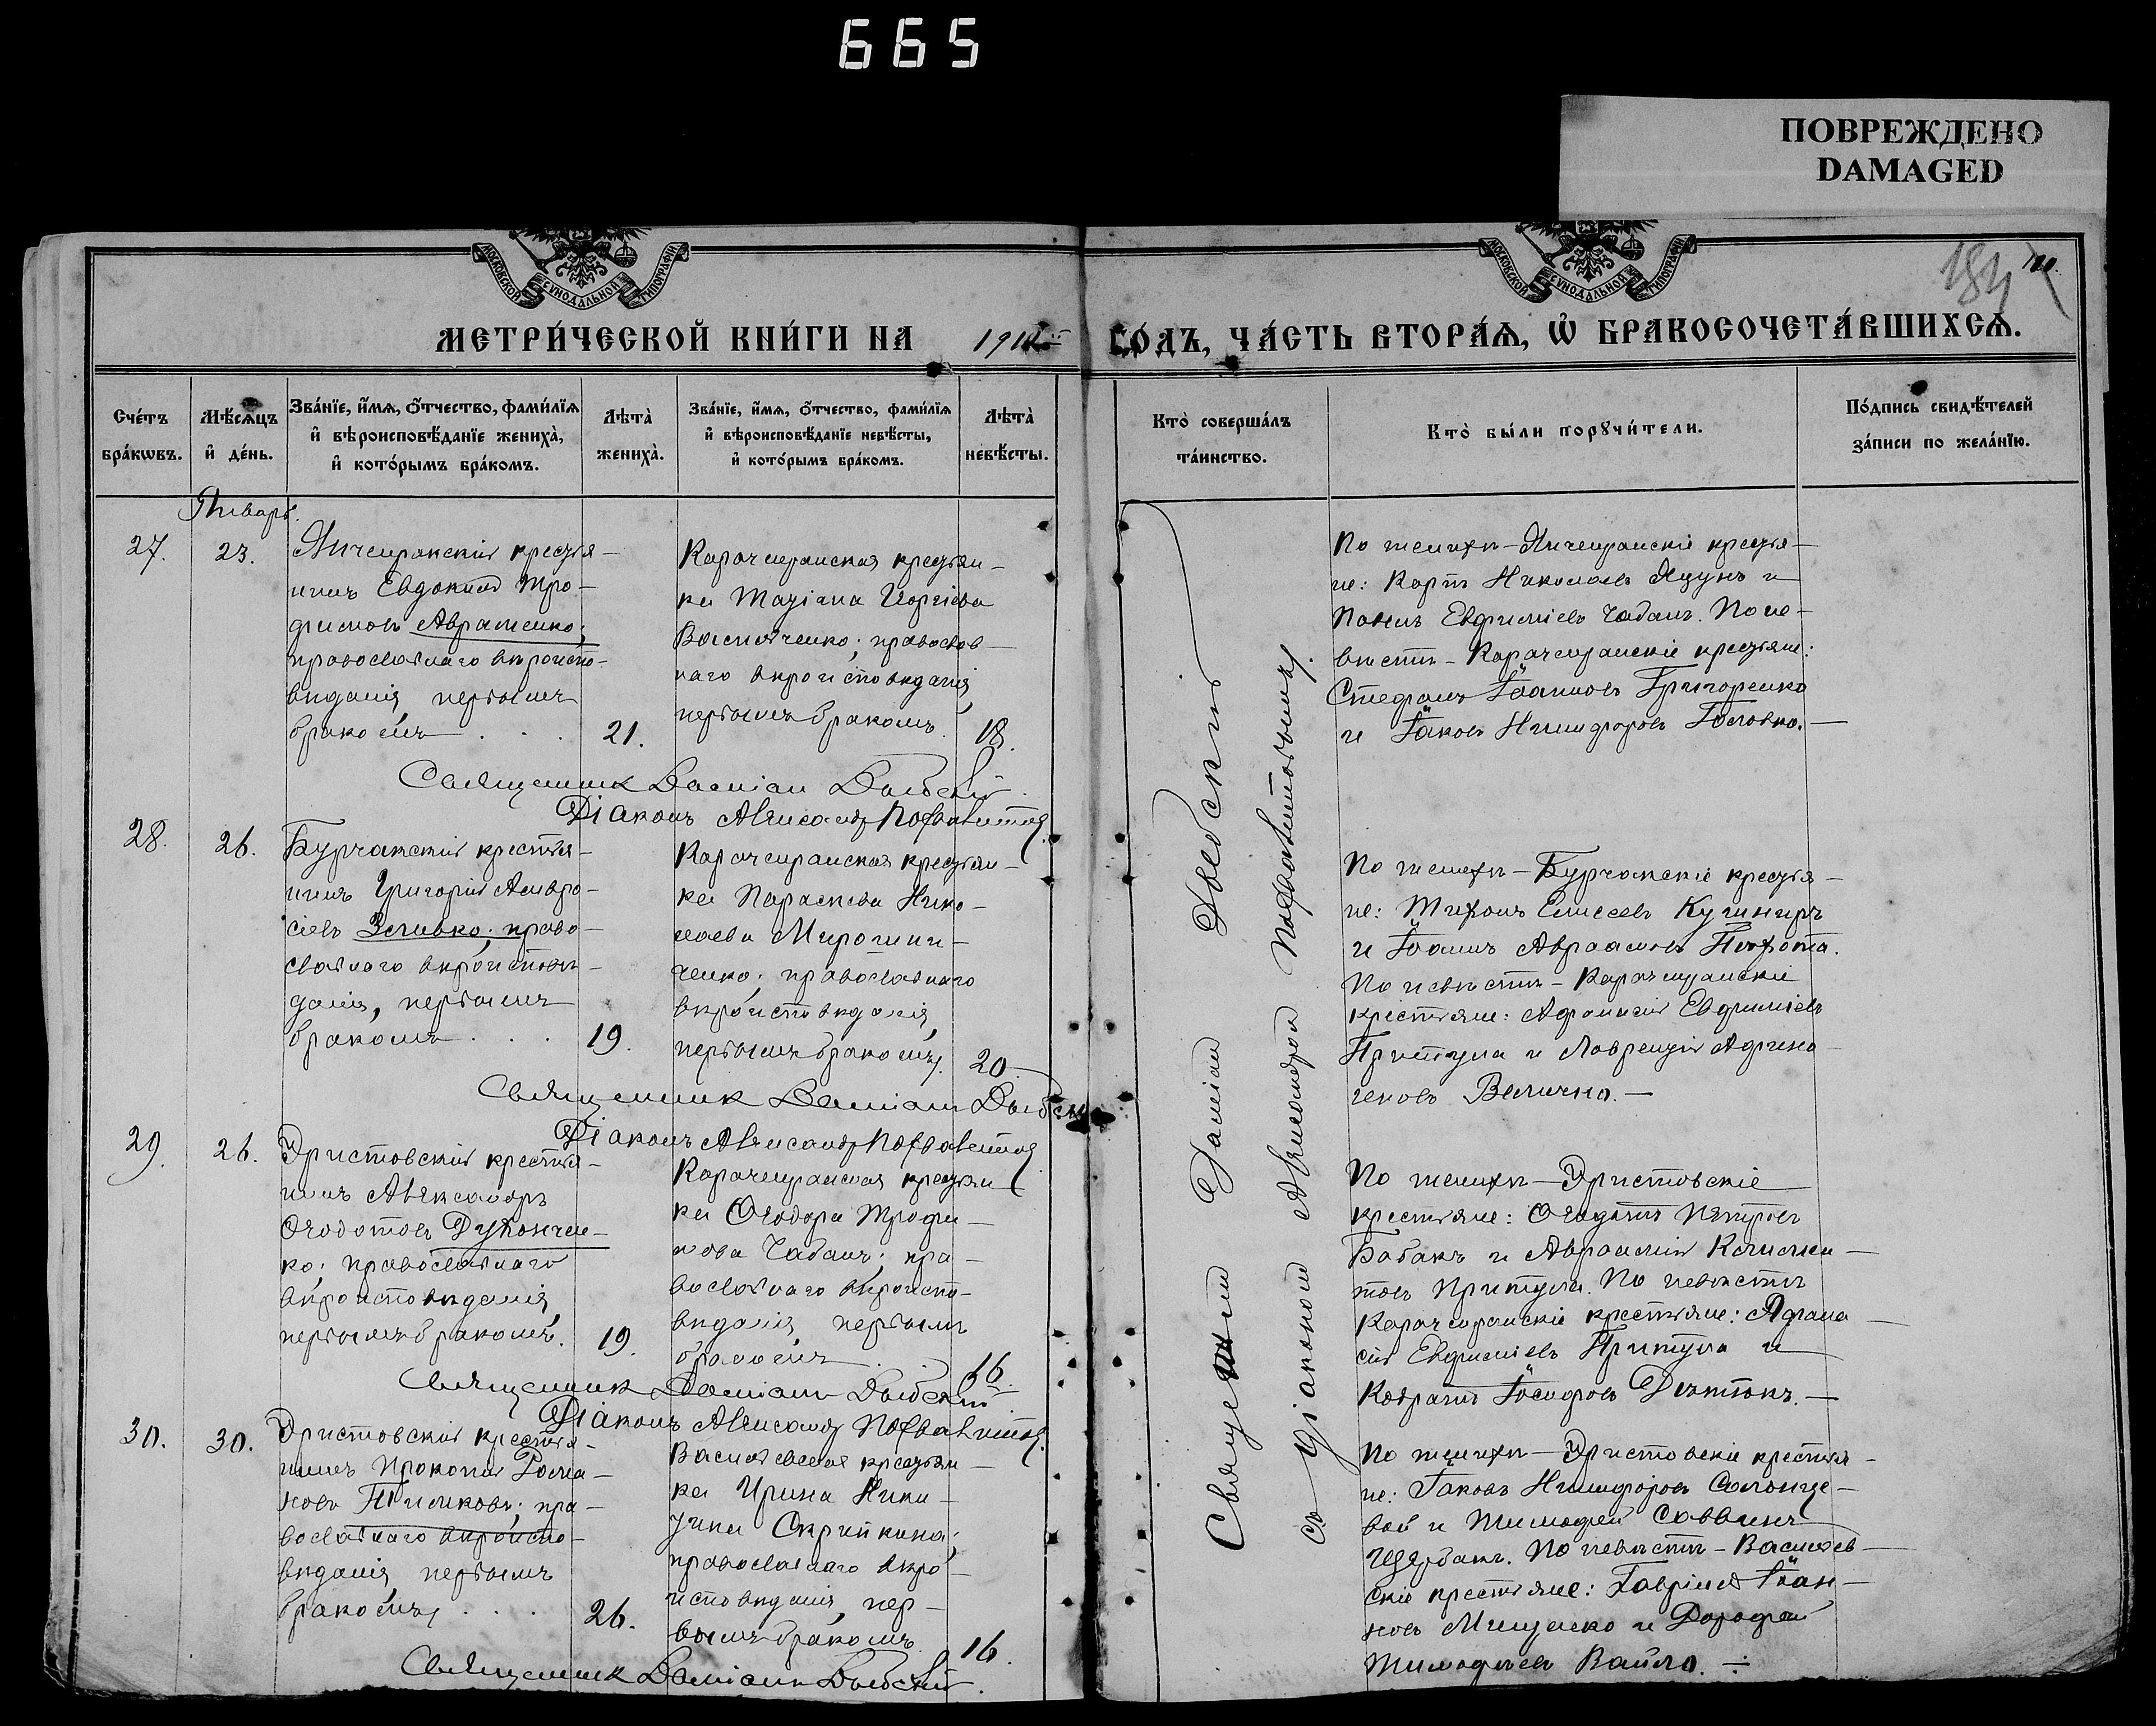 665
ПОВРЕЖДЕНО
DAMAGED
МОСКОВСКОЙ СѴНОДАЛЬНОЙ ТИПОГРАФІИ
МОСКОВСКОЙ СѴНОДАЛЬНОЙ ТИПОГРАФІИ
184
МЕТРИ́ЧЕСКОЙ КНИ́ГИ НА 191
ГО́ДЪ, ЧА́СТЬ ВТОРА́Я, Ѡ БРАКОСОЧЕТА́ВШИХСЯ.
Сче́тъ
бра́кѡвъ.
Мѣ́сяцъ
и҆ де́нь.
Зва́нїе, и҆́мя, ѻ҆́тчество, фами́лїя
и҆ вѣроисповѣ́данїе жениха̀,
и҆ кото́рымъ бра́комъ.
Лѣта̀
жениха̀.
Зва́нїе, и҆́мя, ѻ҆́тчество, фами́лїя
и҆ вѣроисповѣ́данїе невѣ́сты,
и҆ кото́рымъ бра́комъ.
Лѣта̀
невѣ́сты.
Кто̀ соверша́лъ
та́инство.
Кто̀ бы́ли порꙋчи́тели.
По́дпись свидѣ́телей
за́писи по жела́нїю.
Январь.
27.
23.
Янчекракскій крестья-
нинъ Евдокимъ Тро-
фимовъ Авраменко;
православнаго вѣроиспо-
вѣданія, первымъ
бракомъ . . .
21.
Карачекракская крестьян-
ка Татіана Георгіева
Василченко; православ-
наго вѣроисповѣданія,
первымъ бракомъ.
18.
По женихѣ - Янчекракскіе крестья-
не: Карпъ Николаевъ Яцунъ и
Павелъ Евфиміевъ Чабанъ. По не-
вѣстѣ - Карачекракскіе крестьяне:
Стефанъ Іоанновъ Григоренко
и Іаковъ Никифоровъ Головко. -
Священникъ Даміанъ
Діаконъ Александръ Похвалитовъ
28.
26.
Бурчакскій крестья-
нинъ Григорій Амвро-
сіевъ Зеливко; право-
славнаго вѣроисповѣ-
данія, первымъ
бракомъ . . .
19.
Карачекракская крестьян-
ка Параскева Нико-
лаева Мирошни-
ченко; православнаго
вѣроисповѣданія,
первымъ бракомъ.
20.
По женихѣ - Бурчакскіе крестья-
не: Тихонъ Елисеевъ Кушниръ
и Іоаннъ Авраамовъ
По невѣстѣ - Карачекракскіе
крестьяне: Афанасій Евфиміевъ
Притула и Лаврентій Афино-
геновъ Величко. -
Священникъ Даміанъ
Діаконъ Александръ Похвалитовъ
29.
26.
Эристовскій крестья-
нинъ Александръ
Ѳеодотовъ
ко; православнаго
вѣроисповѣданія,
первымъ бракомъ.
19.
Карачекракская крестьян-
ка Ѳеодора Трофи-
мова Чабанъ; пра-
вославнаго вѣроиспо-
вѣданія, первымъ
бракомъ . .
16.
По женихѣ - Эристовскіе
крестьяне: Ѳеодотъ Петровъ
Бабакъ и Авраамій Клімен-
товъ Притула. По невѣстѣ
Карачекракскіе крестьяне: Афана-
сій Евфиміевъ Притула и
Кодратъ Іосифовъ
Священникъ Даміанъ
Діаконъ Александръ Похвалитовъ
30.
30.
Эристовскій крестья-
нинъ Прокопій Рома-
новъ пра-
вославнаго вѣроиспо-
вѣданія, первымъ
бракомъ, . . .
26.
Васильевская крестьян-
ка Ирина Ники-
тина Скрипкина;
православнаго вѣро-
исповѣданія, пер-
вымъ бракомъ.
16.
По женихѣ - Эристовскіе крестья-
не: Іаковъ Никифоровъ Солонце-
вой и Тимофей Саввинъ
Щербакъ. По невѣстѣ - Васильев-
скіе крестьяне: Гавріилъ Іоан-
новъ Мищенко и Дорофей
Тимофеевъ Вайло.
Священникъ Даміанъ
Священникъ Даміанъ
съ діакономъ Александромъ Похвалитовымъ.